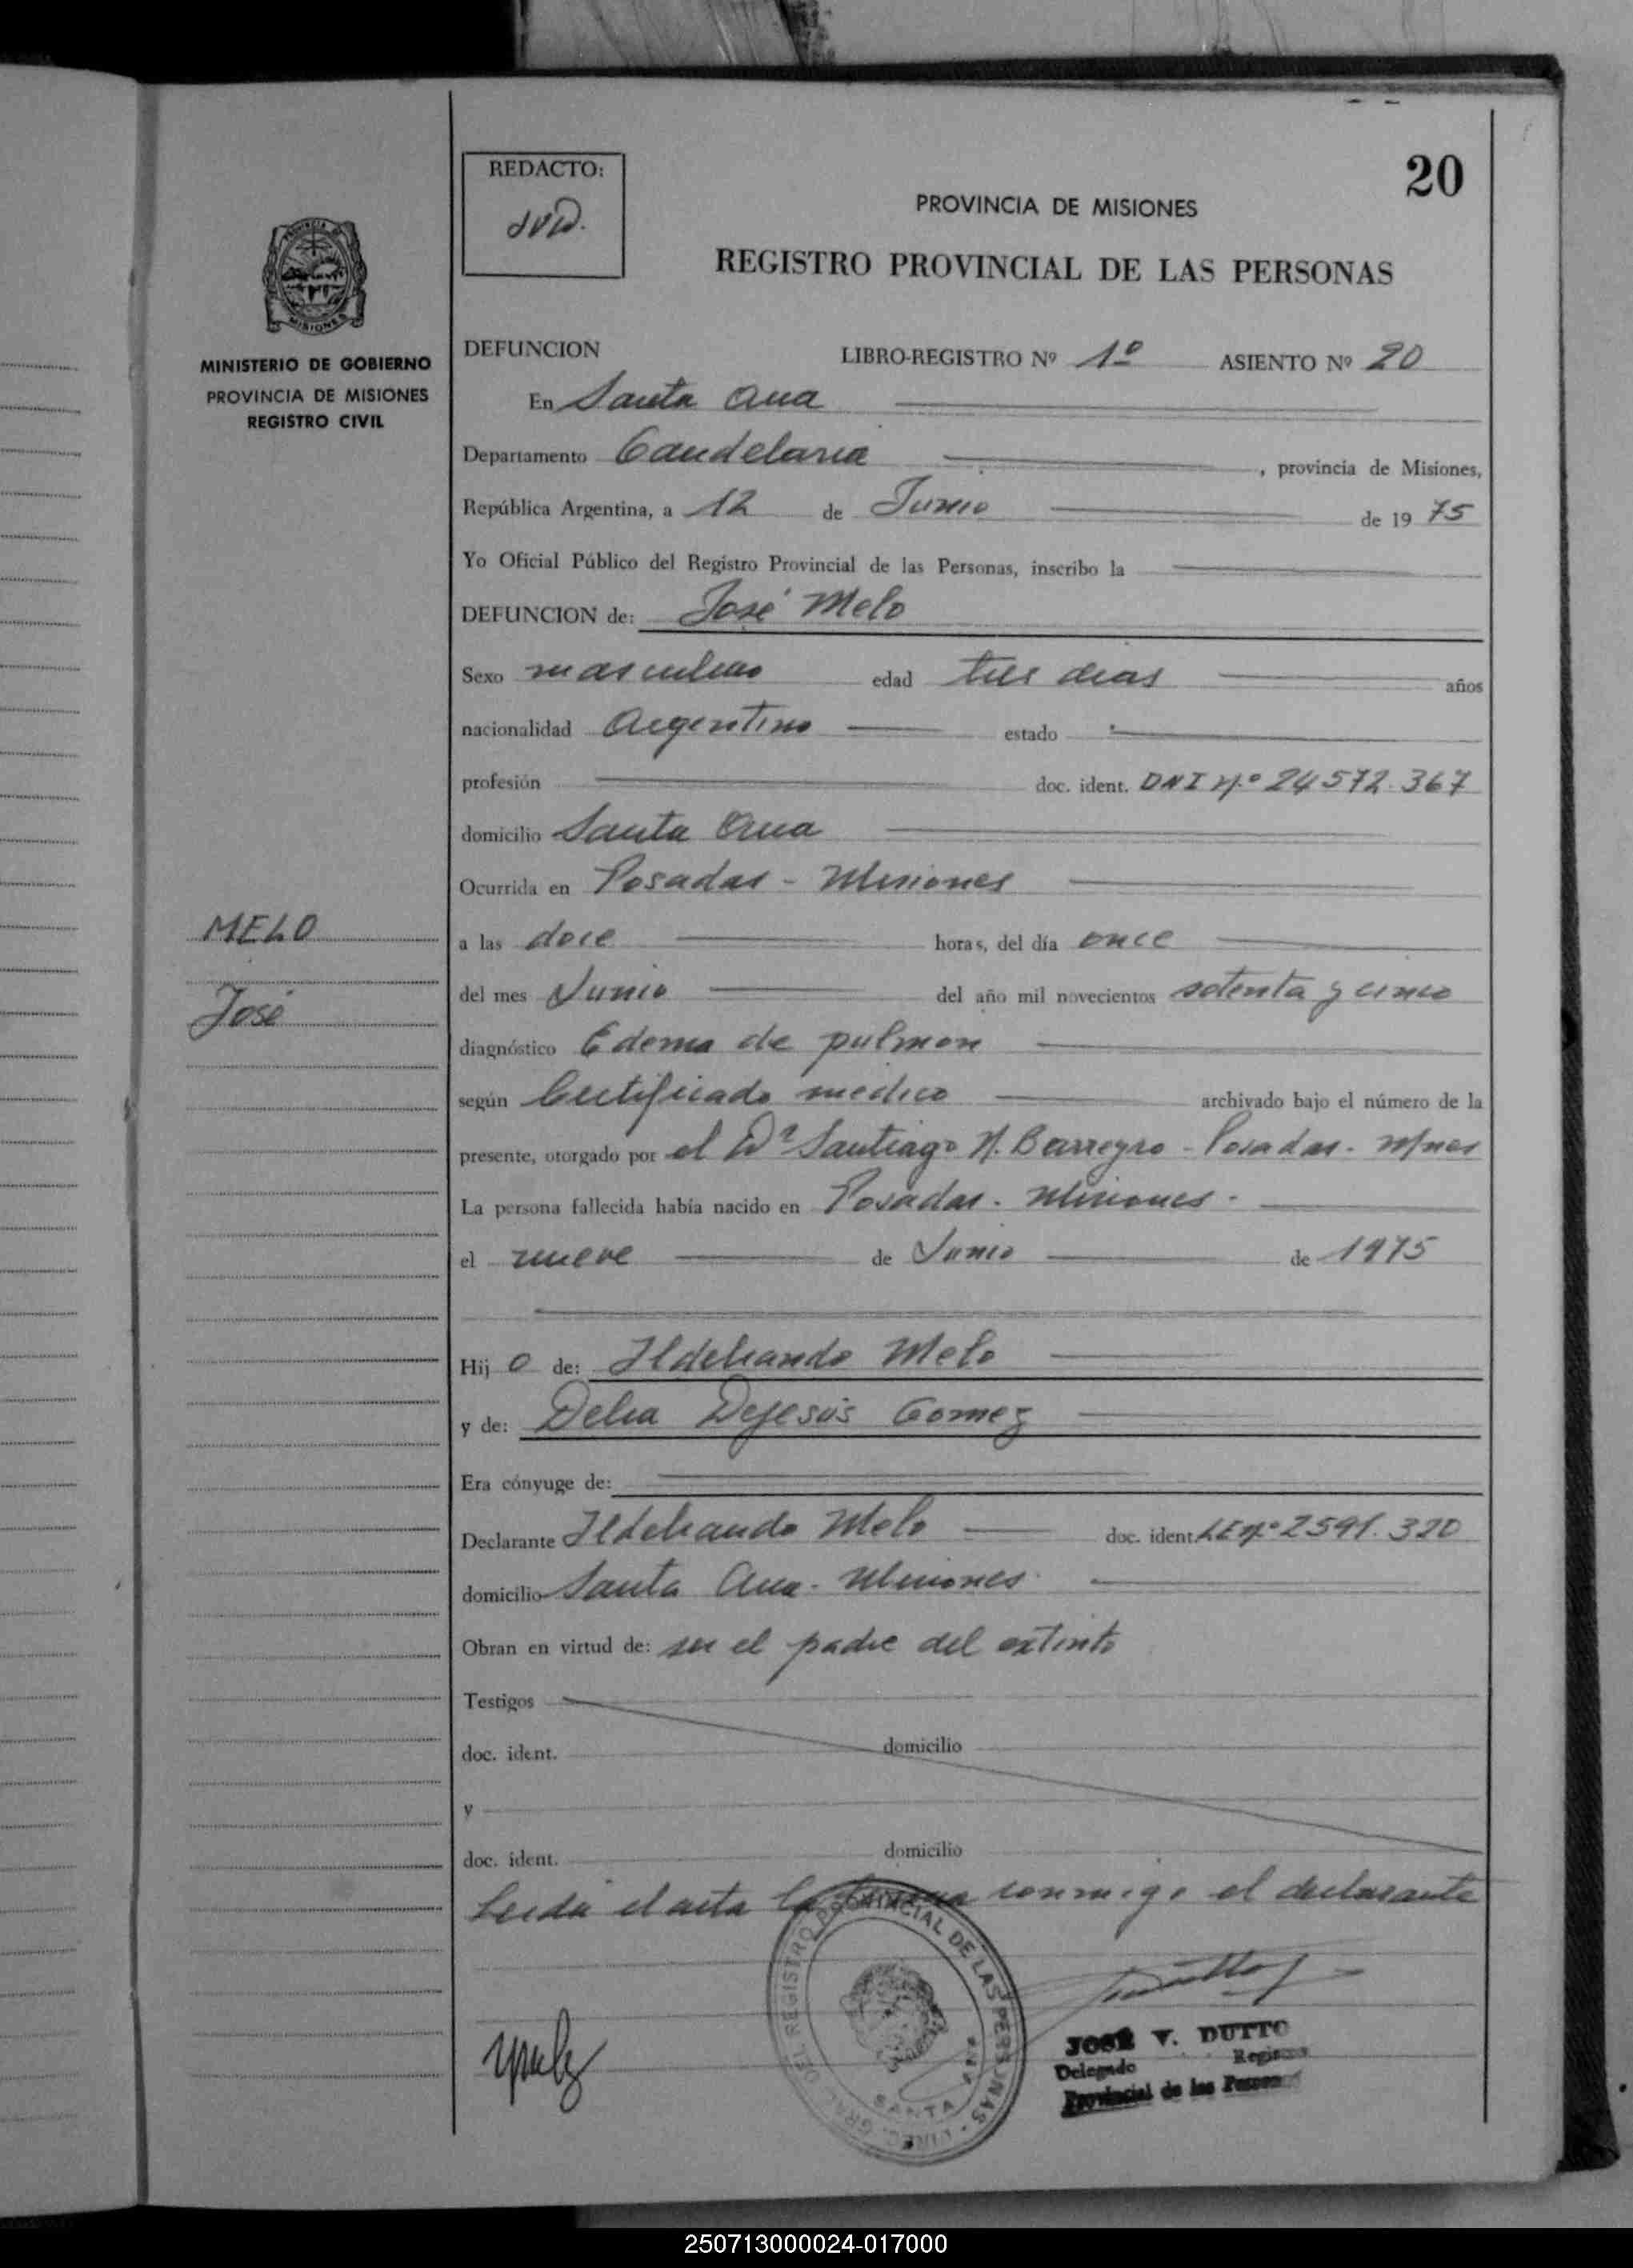 20
REDACTO:
JVD.
PROVINCIA DE MISIONES
REGISTRO PROVINCIAL DE LAS PERSONAS
MISIONES
MINISTERIO DE GOBIERNO
PROVINCIA DE MISIONES
REGISTRO CIVIL
DEFUNCION LIBRO-REGISTRO Nº 1º ASIENTO Nº 20
En Santa Ana
Departamento Candelaria , provincia de Misiones,
República Argentina, a 12 de Junio de 19 75
Yo Oficial Público del Registro Provincial de las Personas, inscribo la
DEFUNCION de: José Melo
Sexo masculino edad tres dias años
nacionalidad Argentino estado
profesión doc. ident. DNI Nº 24572.367
domicilio Santa Ana
Ocurrida en Posadas - Misiones
MELO
José
a las doce horas, del día once
del mes Junio del año mil novecientos setenta y cinco
diagnóstico Edema de pulmon
según Certificado medico archivado bajo el número de la
presente, otorgado por el Dr Santiago N. Barreyro - Posadas - Mnes
La persona fallecida había nacido en Posadas - Misiones -
el nueve de Junio de 1975
Hij o de: Ildebrando Melo
y de: Delia Dejesús Gomez
Era cónyuge de:
Declarante Ildebrando Melo doc. ident. LE Nº 2591.320
domicilio Santa Ana - Misiones
Obran en virtud de: ser el padre del extinto
Testigos
doc. ident. domicilio
y
doc. ident. domicilio
Leida el acta la firma conmigo el declarante
REGISTRO PROVINCIAL DE LAS PERSONAS
SANTA ANA
JOSE V. DUTTO
Delegado Registro
Provincial de las Personas
250713000024-017000